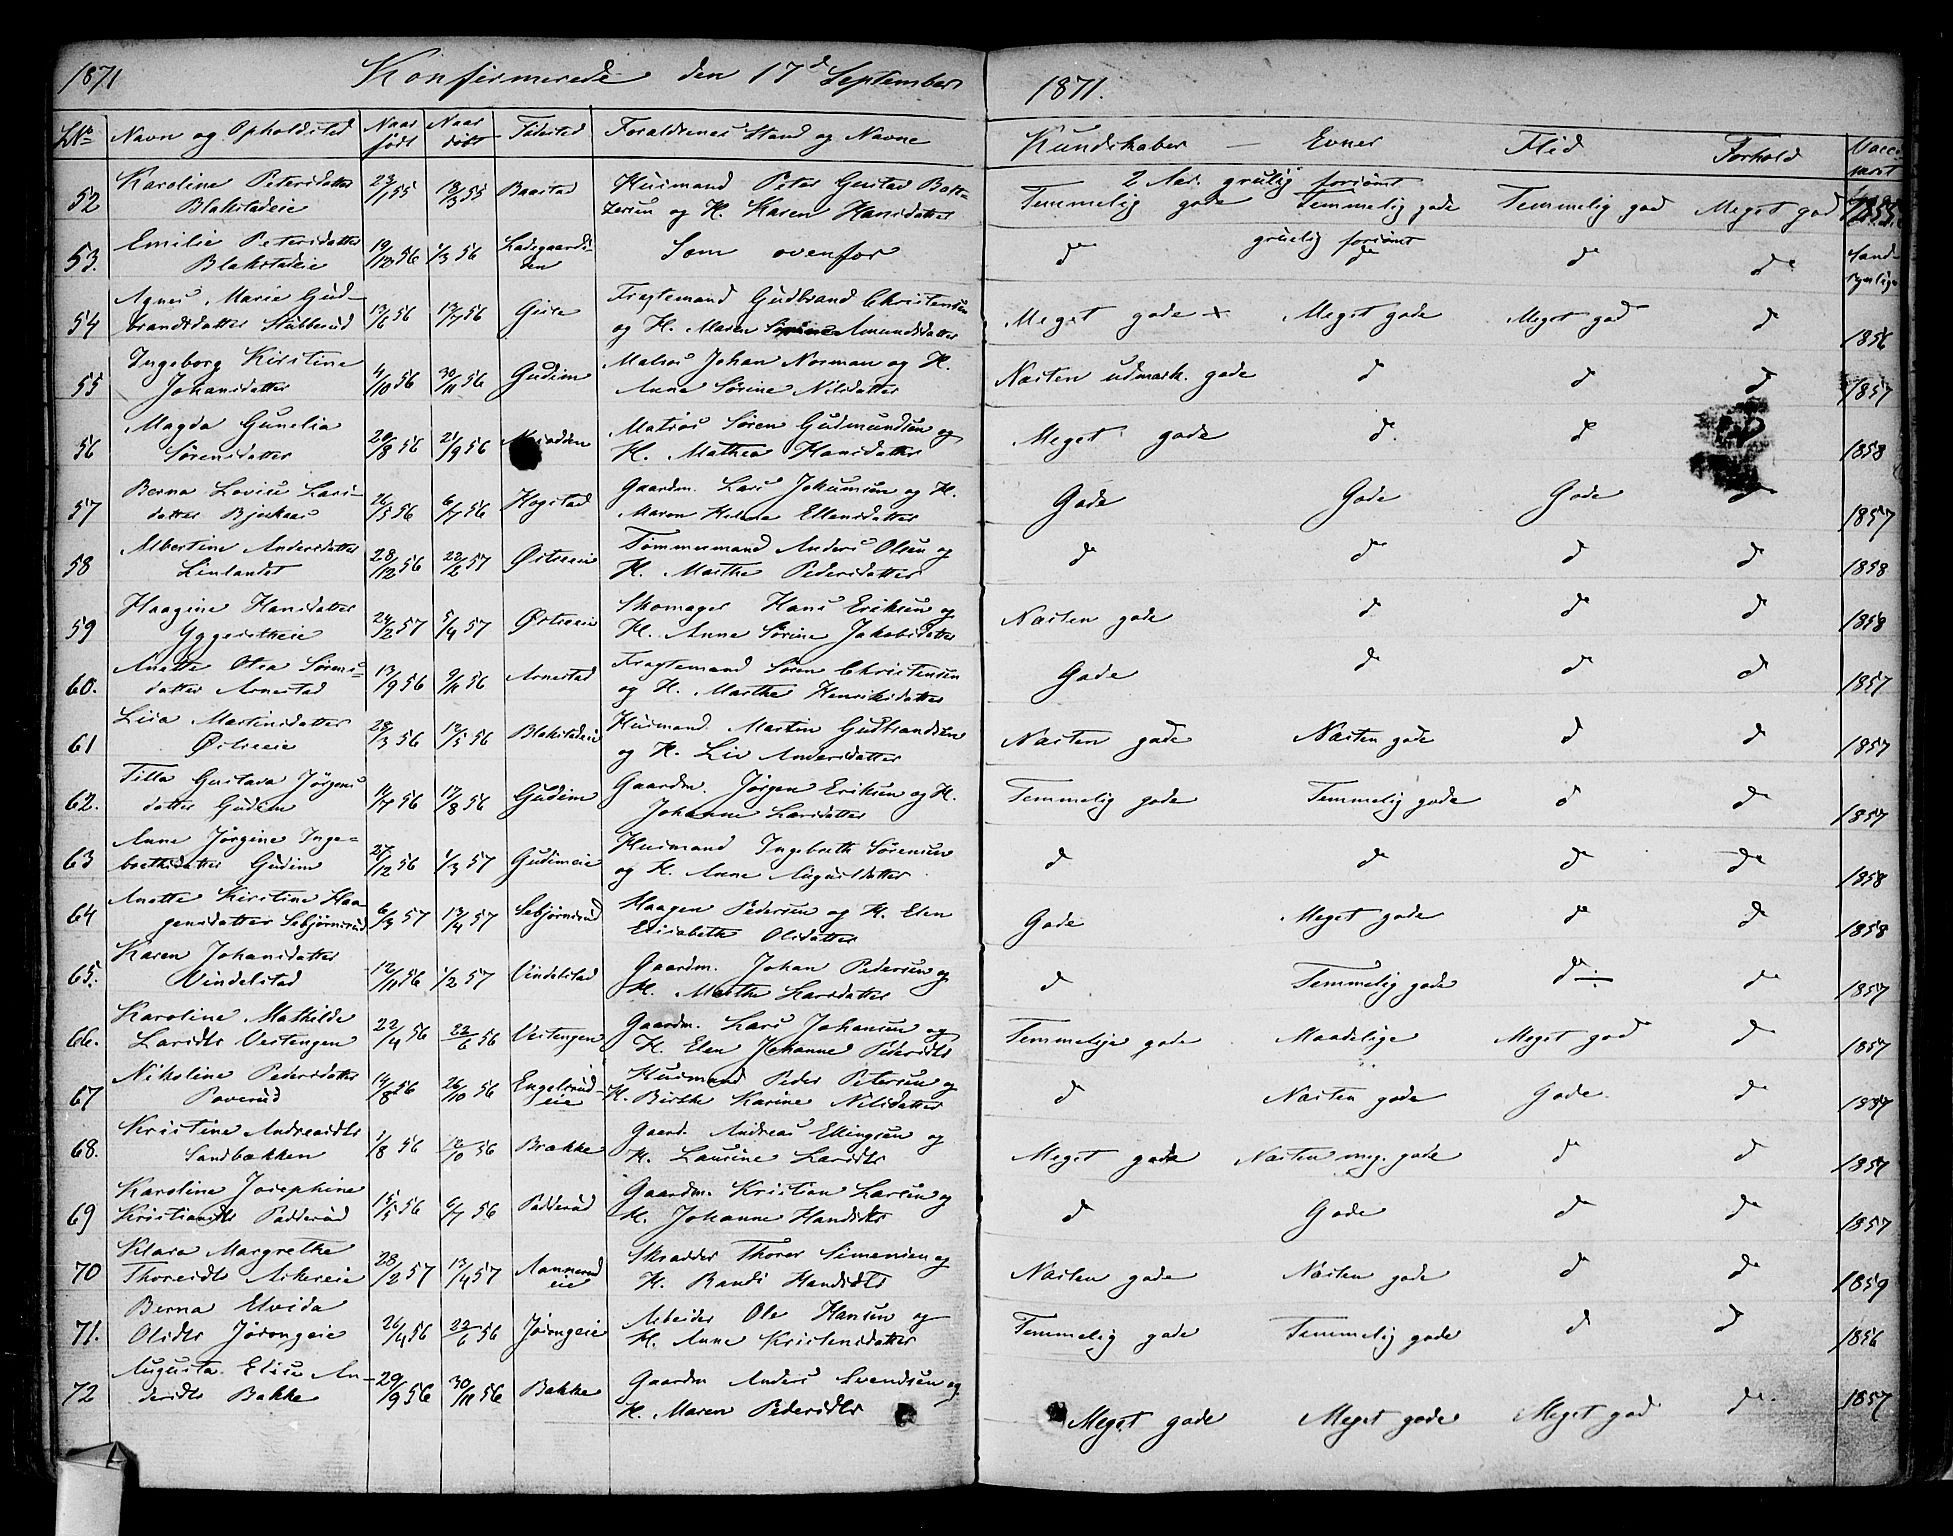 1871 Konfirmerede den 17d September 1871.
No Navn og Opholdsted Naar født Naar døbt Fødested Forældrenes Stand og Navne Kundskaber — Evner Flid Forhold
52 Karoline Petersdatter 23/1 55 18/3 55 Baastad Husmand Peter Gustav
Blakstadeie og H. Karen Hansdatter Temmelig gode Temmelig gode Temmelig god Meget god
53. Emilie Petersdatter 19/12 56 1/3 56 Som ovenfor d d d d
Blakstadeie
54 Agnes Marie Gud- 13/6 56 13/7 56 Fragtemand Gudbrand Christensen
brandsdatter Stubberud og H. Maren Amundsdatter Meget gode Meget gode Meget god d 1856
55 Ingeborg Kirstine 4/10 56 30/11 56 Gudim Matros Johan Norman og H.
Johansdatter Anne Sørine Nilsdatter Næsten udmærk. gode d d d 1857
56 Magda Gunelia 20/8 56 21/9 56 Matros Søren Gudmundsen og
Sørensdatter H. Mathea Hansdatter Meget gode d d 1858
57 Berna Lovise Lars- 26/5 56 6/7 56 Hogstad Gaardm. Lars Jokumsen og H.
datter Bjerkaas Maren Helene Ellensdatter Gode Gode Gode d 1857
58 Albertine Andersdatter 28/12 56 22/2 57 Østreeie Tømmermand Anders Olsen og
Linlandet H. Marthe Pedersdatter d d d d 1858
59 Haagine Hansdatter 24/2 57 5/4 57 Østreeie Skomager Hans Eriksen og
Yggersetheie H. Anne Sørine Jakobsdatter Næsten gode d d d 1858
60. Anette Olea Sørens- 13/9 56 9/11 56 Arnestad Fragtemand Søren Christensen
datter Arnestad og H. Marthe Henriksdatter Gode d d d 1857
61 Lisa Martinsdatter 28/3 56 12/5 56 Blakstadeie Husmand Martin Gudbrandsen
Østreeie og H. Liv Andersdatter Næsten gode Næsten gode d d 1857
62. Tilla Gustava Jørgens 11/7 56 17/8 56 Gudim Gaardm. Jørgen Eriksen og H.
datter Gudim Johanne Larsdatter Temmelig gode Temmelig gode d d 1857
63 Anne Jørgine Inge- 27/12 56 1/3 57 Gudimeie Husmand Ingebreth Sørensen
brethsdatter Gudim og H. Anne Augusdatter d d d d 1858
64 Anette Kirstine Haa- 6/3 57 13/4 57 Sebjørnrud Haagen Pedersen og H. Elen
gensdatter Sebjørnrud Elisabeth Olsdatter Gode Meget gode d d 1858
65. Karen Johansdatter 12/11 56 1/2 57 Vindelstad Gaardm. Johan Pedersen og
Vindelstad H. Marthe Larsdatter d Temmelig gode d d 1857
66. Karoline Mathilde 22/4 56 22/6 56 Vestengen Gaardm. Lars Johansen og
Larsdtr Vestengen H. Elen Johanne Pedersdtr Temmelige gode Maadelige Meget god d 1857
67 Nikoline Pedersdatter 14/8 56 26/10 56 Engelsrud- Husmand Peder Petersen og
Poverud eie H. Birthe Karine Nilsdatter d Næsten gode Gode d 1857
68. Kristine Andreasdtr 1/8 56 12/10 56 Brække Gaard. Andreas Ellingsen og
Sandbækken H. Laurine Larsdtr Meget gode Næsten meg. gode d d 1857
69 Karoline Josephine 15/5 56 6/7 56 Padderud Gaardm. Kristian Larsen og
Kristiansdtr Padderud H. Johanne Hansdtr d Gode d d 1857
70 Klara Margrethe 28/2 57 13/4 57 Skrædder Thorer Simensen og
Thorersdtr Askereie H. Randi Hansdtr Næsten gode Næsten gode d d 1859
71. Berna Elvida 26/4 56 22/6 56 Jørongeie Arbeider Ole Hansen og
Olsdtr Jørongeie H. Anne Kristensdatter Temmelig gode Temmelig gode d d 1856
72 Augusta Elise An- 29/9 56 30/11 56 Bakke Gaardm Anders Svendsen og
dersdtr Bakke H. Maren Pedersdtr Meget gode Meget gode Meget god d 1857